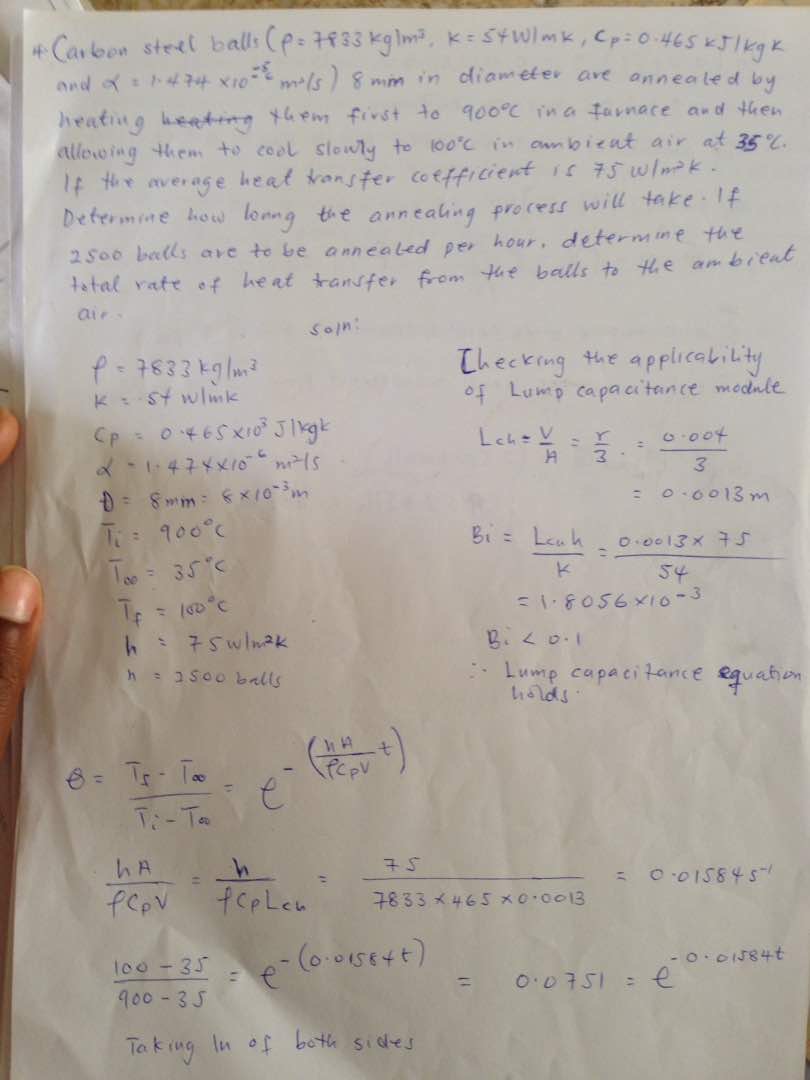 4. Carbon steel balls (ρ = 7833 kg/m³, K = 54 W/mk, Cp = 0.465 kJ/kg k
and α = 1.474 × 10⁻⁶ m²/s) 8 mm in diameter are annealed by
heating heating them first to 900°C in a furnace and then
allowing them to cool slowly to 100°C in ambient air at 35°C.
If the average heat transfer coefficient is 75 W/m²k.
Determine how lonng the annealing process will take. If
2500 balls are to be annealed per hour. determine the
total rate of heat transfer from the balls to the ambient
air.
soln:
ρ = 7833 kg/m³
K = 54 W/mk
Cp = 0.465×10³ J/kgk
α = 1.474×10⁻⁶ m²/s
D = 8mm = 8×10⁻³m
Ti = 900°C
T∞ = 35°C
Tf = 100°C
h = 75 W/m²K
n = 2500 balls
Checking the applicability
of Lump capacitance module
Lch = V/A = r/3 = 0.004/3
= 0.0013 m
Bi = Lch h/K = 0.0013 × 75/54
= 1.8056×10⁻³
Bi < 0.1
∴ Lump capacitance equation
holds.
θ = Tf - T∞/Ti - T∞ = e^-(hA/ρCpV t)
hA/ρCpV = h/ρCpLch = 75/7833 × 465 × 0.0013 = 0.01584 s⁻¹
100 - 35/900 - 35 = e^-(0.01584t) = 0.0751 = e^-0.01584t
Taking ln of both sides